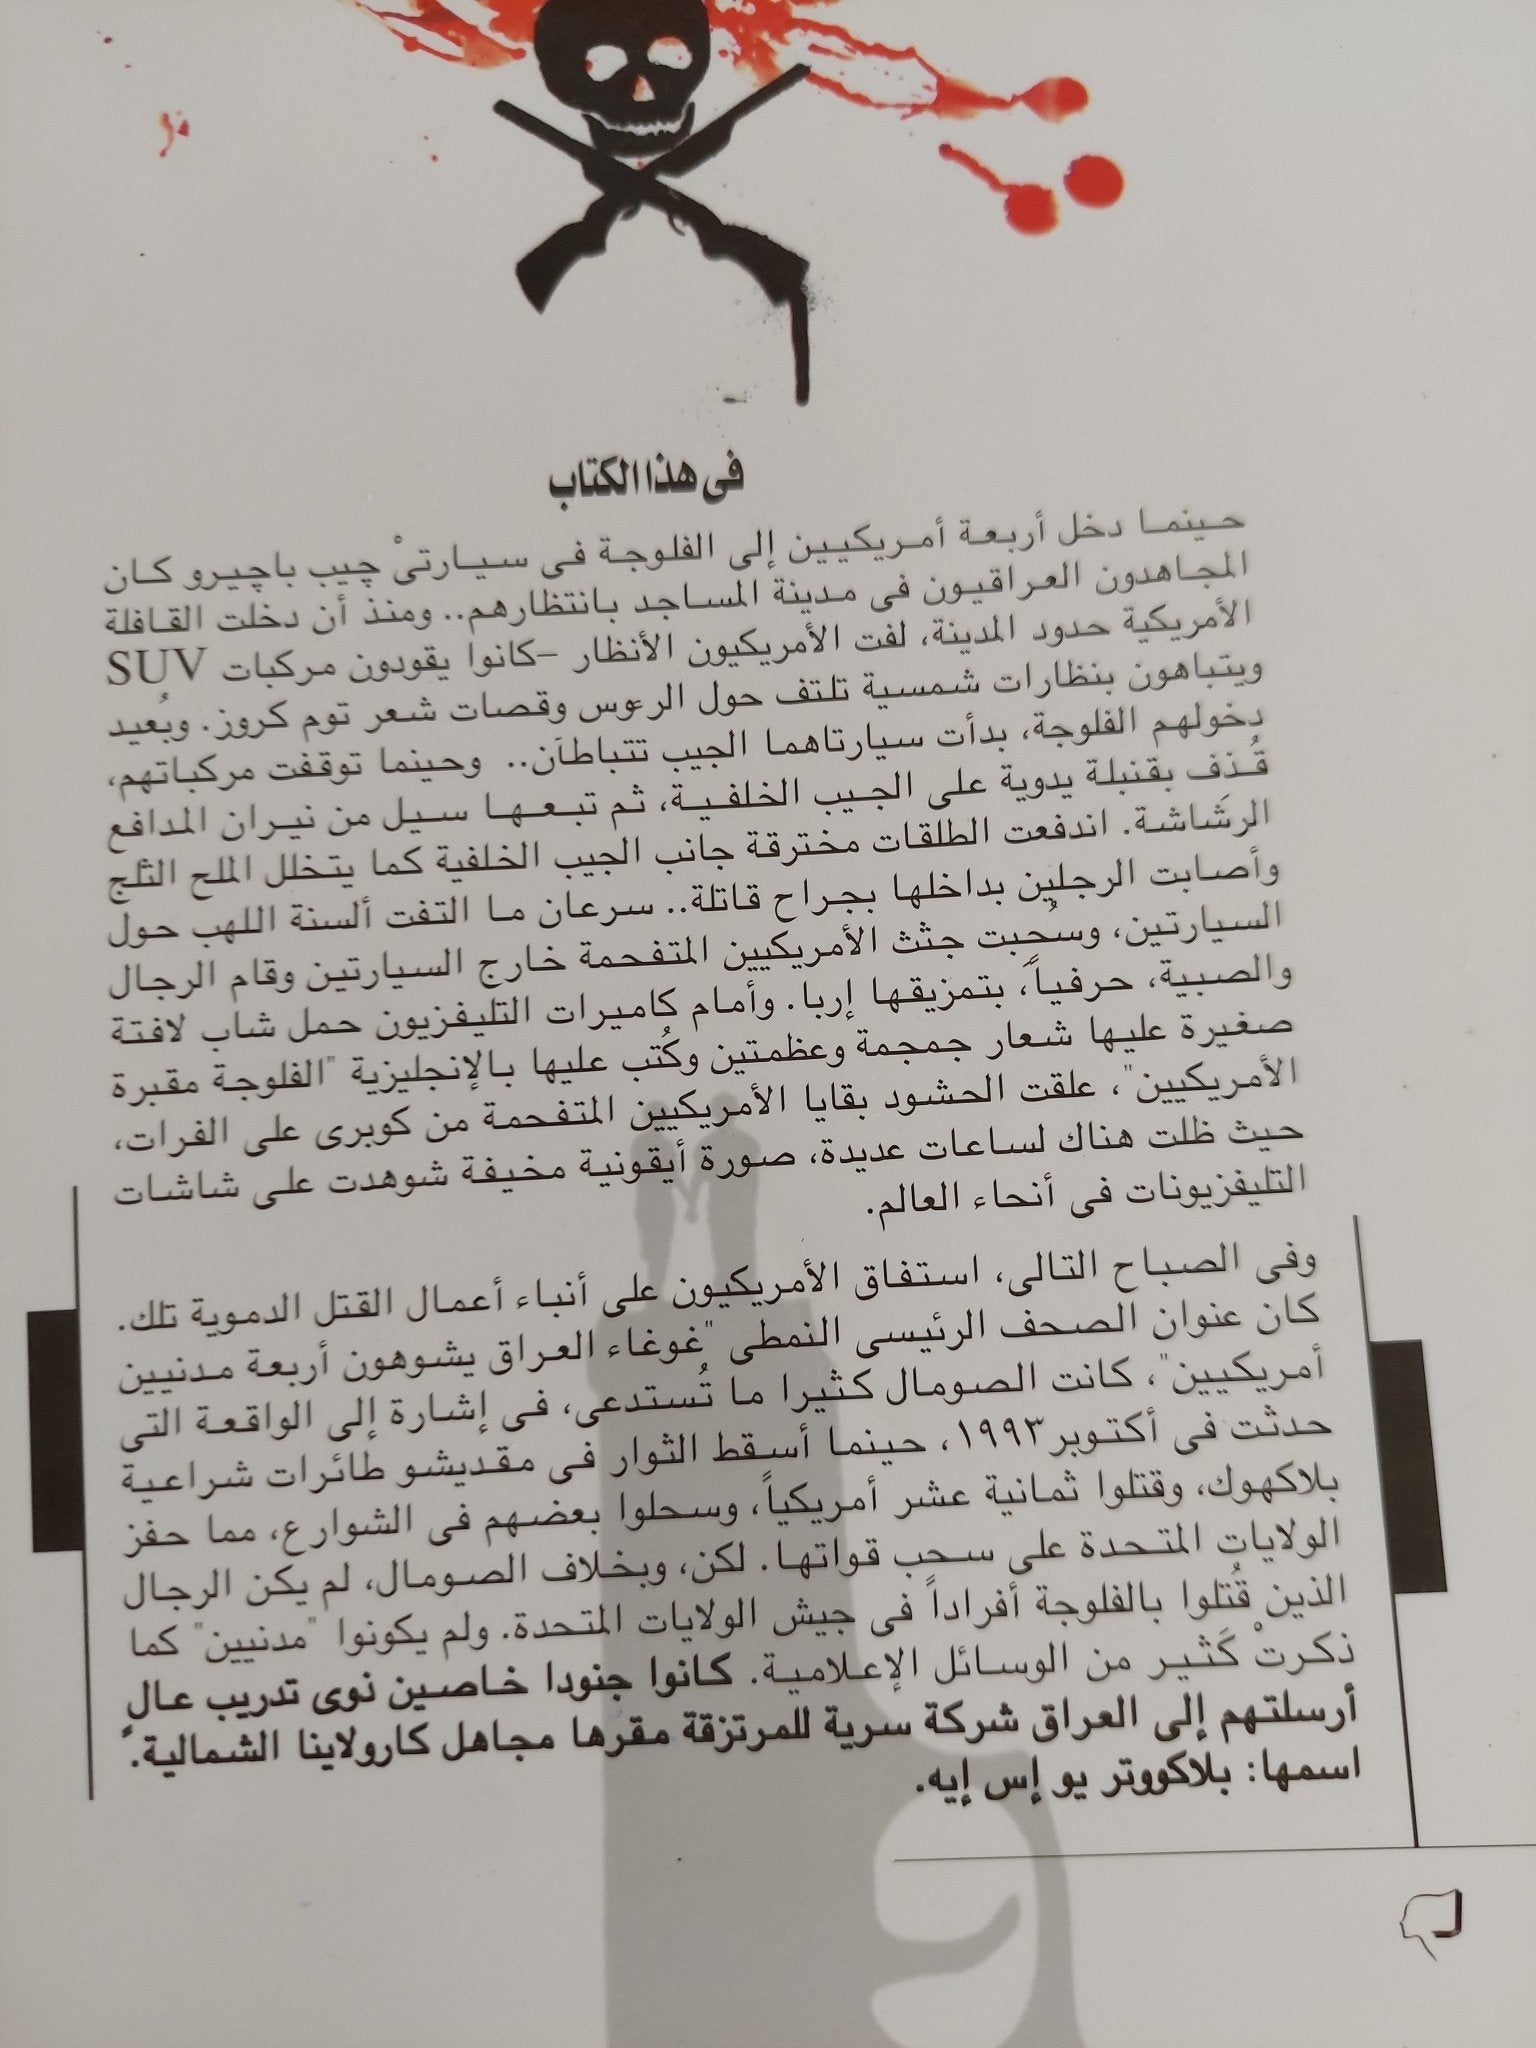 فى هذا الكتاب
حينما دخل أربعة أمريكيين إلى الفلوجة فى سيارتىْ چيب باچيرو كان
المجاهدون العراقيون فى مدينة المساجد بانتظارهم.. ومنذ أن دخلت القافلة
الأمريكية حدود المدينة، لفت الأمريكيون الأنظار –كانوا يقودون مركبات SUV
ويتباهون بنظارات شمسية تلتف حول الرءوس وقصات شعر توم كروز. وبُعيد
دخولهم الفلوجة، بدأت سيارتاهما الجيب تتباطآن.. وحينما توقفت مركباتهم،
قُذف بقنبلة يدوية على الجيب الخلفية، ثم تبعها سيل من نيران المدافع
الرشَاشة. اندفعت الطلقات مخترقة جانب الجيب الخلفية كما يتخلل الملح الثلج
وأصابت الرجلين بداخلها بجراح قاتلة.. سرعان ما التفت ألسنة اللهب حول
السيارتين، وسُحبت جثث الأمريكيين المتفحمة خارج السيارتين وقام الرجال
والصبية، حرفياً، بتمزيقها إربا. وأمام كاميرات التليفزيون حمل شاب لافتة
صغيرة عليها شعار جمجمة وعظمتين وكُتب عليها بالإنجليزية "الفلوجة مقبرة
الأمريكيين"، علقت الحشود بقايا الأمريكيين المتفحمة من كوبرى على الفرات،
حيث ظلت هناك لساعات عديدة، صورة أيقونية مخيفة شوهدت على شاشات
التليفزيونات فى أنحاء العالم.
وفى الصباح التالى، استفاق الأمريكيون على أنباء أعمال القتل الدموية تلك.
كان عنوان الصحف الرئيسى النمطى "غوغاء العراق يشوهون أربعة مدنيين
أمريكيين"، كانت الصومال كثيرا ما تُستدعى، فى إشارة إلى الواقعة التى
حدثت فى أكتوبر١٩٩٣، حينما أسقط الثوار فى مقديشو طائرات شراعية
بلاكهوك، وقتلوا ثمانية عشر أمريكياً، وسحلوا بعضهم فى الشوارع، مما حفز
الولايات المتحدة على سحب قواتها. لكن، وبخلاف الصومال، لم يكن الرجال
الذين قُتلوا بالفلوجة أفراداً فى جيش الولايات المتحدة. ولم يكونوا "مدنيين" كما
ذكرتْ كَثير من الوسائل الإعلامية. كانوا جنودا خاصين ذوى تدريب عالٍ
أرسلتهم إلى العراق شركة سرية للمرتزقة مقرها مجاهل كارولاينا الشمالية.
اسمها: بلاكووتر يو إس إيه.